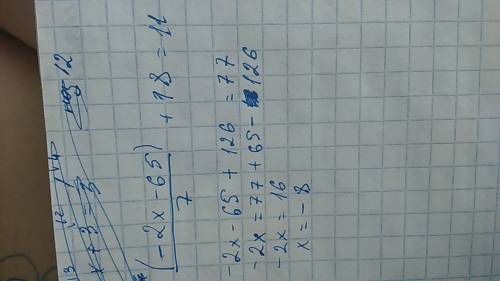 x + 3 = 3
(-2x - 65)/7 + 18 = 11
-2x - 65 + 126 = 77
-2x = 77 + 65 - 126
-2x = 16
x = -8